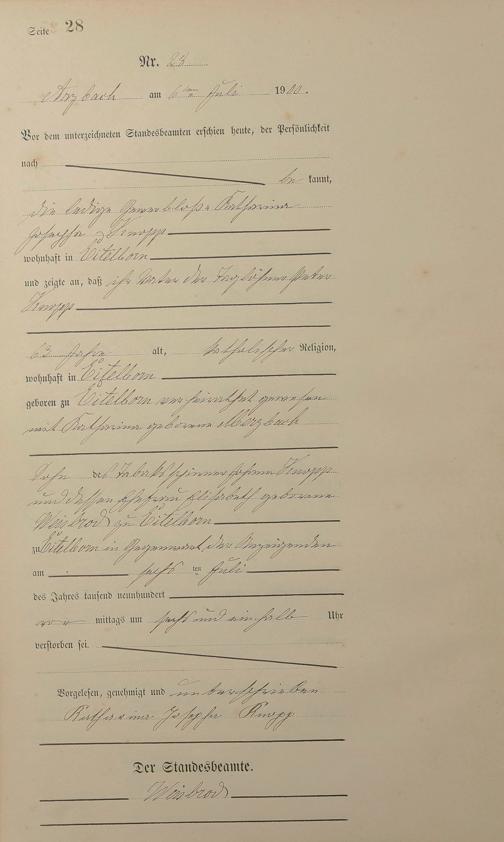 Seite 28
Nr. 28
Arzbach am 6ten Juli 1900.
Vor dem unterzeichneten Standesbeamten erschien heute, der Persönlichkeit
nach
be kannt,
die ledige Gewerblose Katharina
Josepha Knopp
wohnhaft in Eitelborn
und zeigte an, daß ihr Vater der Taglöhner Peter
Knopp
63 Jahre alt, katholischer Religion,
wohnhaft in Eitelborn
geboren zu Eitelborn verheirathet gewesen
mit Katharina geborene Morzbach
Sohn des Tabakspinners Johann Knopp
und dessen Ehefrau Elisabeth geborene
Weisbrod zu Eitelborn
zu Eitelborn in Gegenwart der Anzeigenden
am sechsten Juli
des Jahres tausend neunhundert
vor mittags um sechs und ein halb Uhr
verstorben sei.
Vorgelesen, genehmigt und unterschrieben
Katharina Josepha Knopp
Der Standesbeamte.
Weisbrod